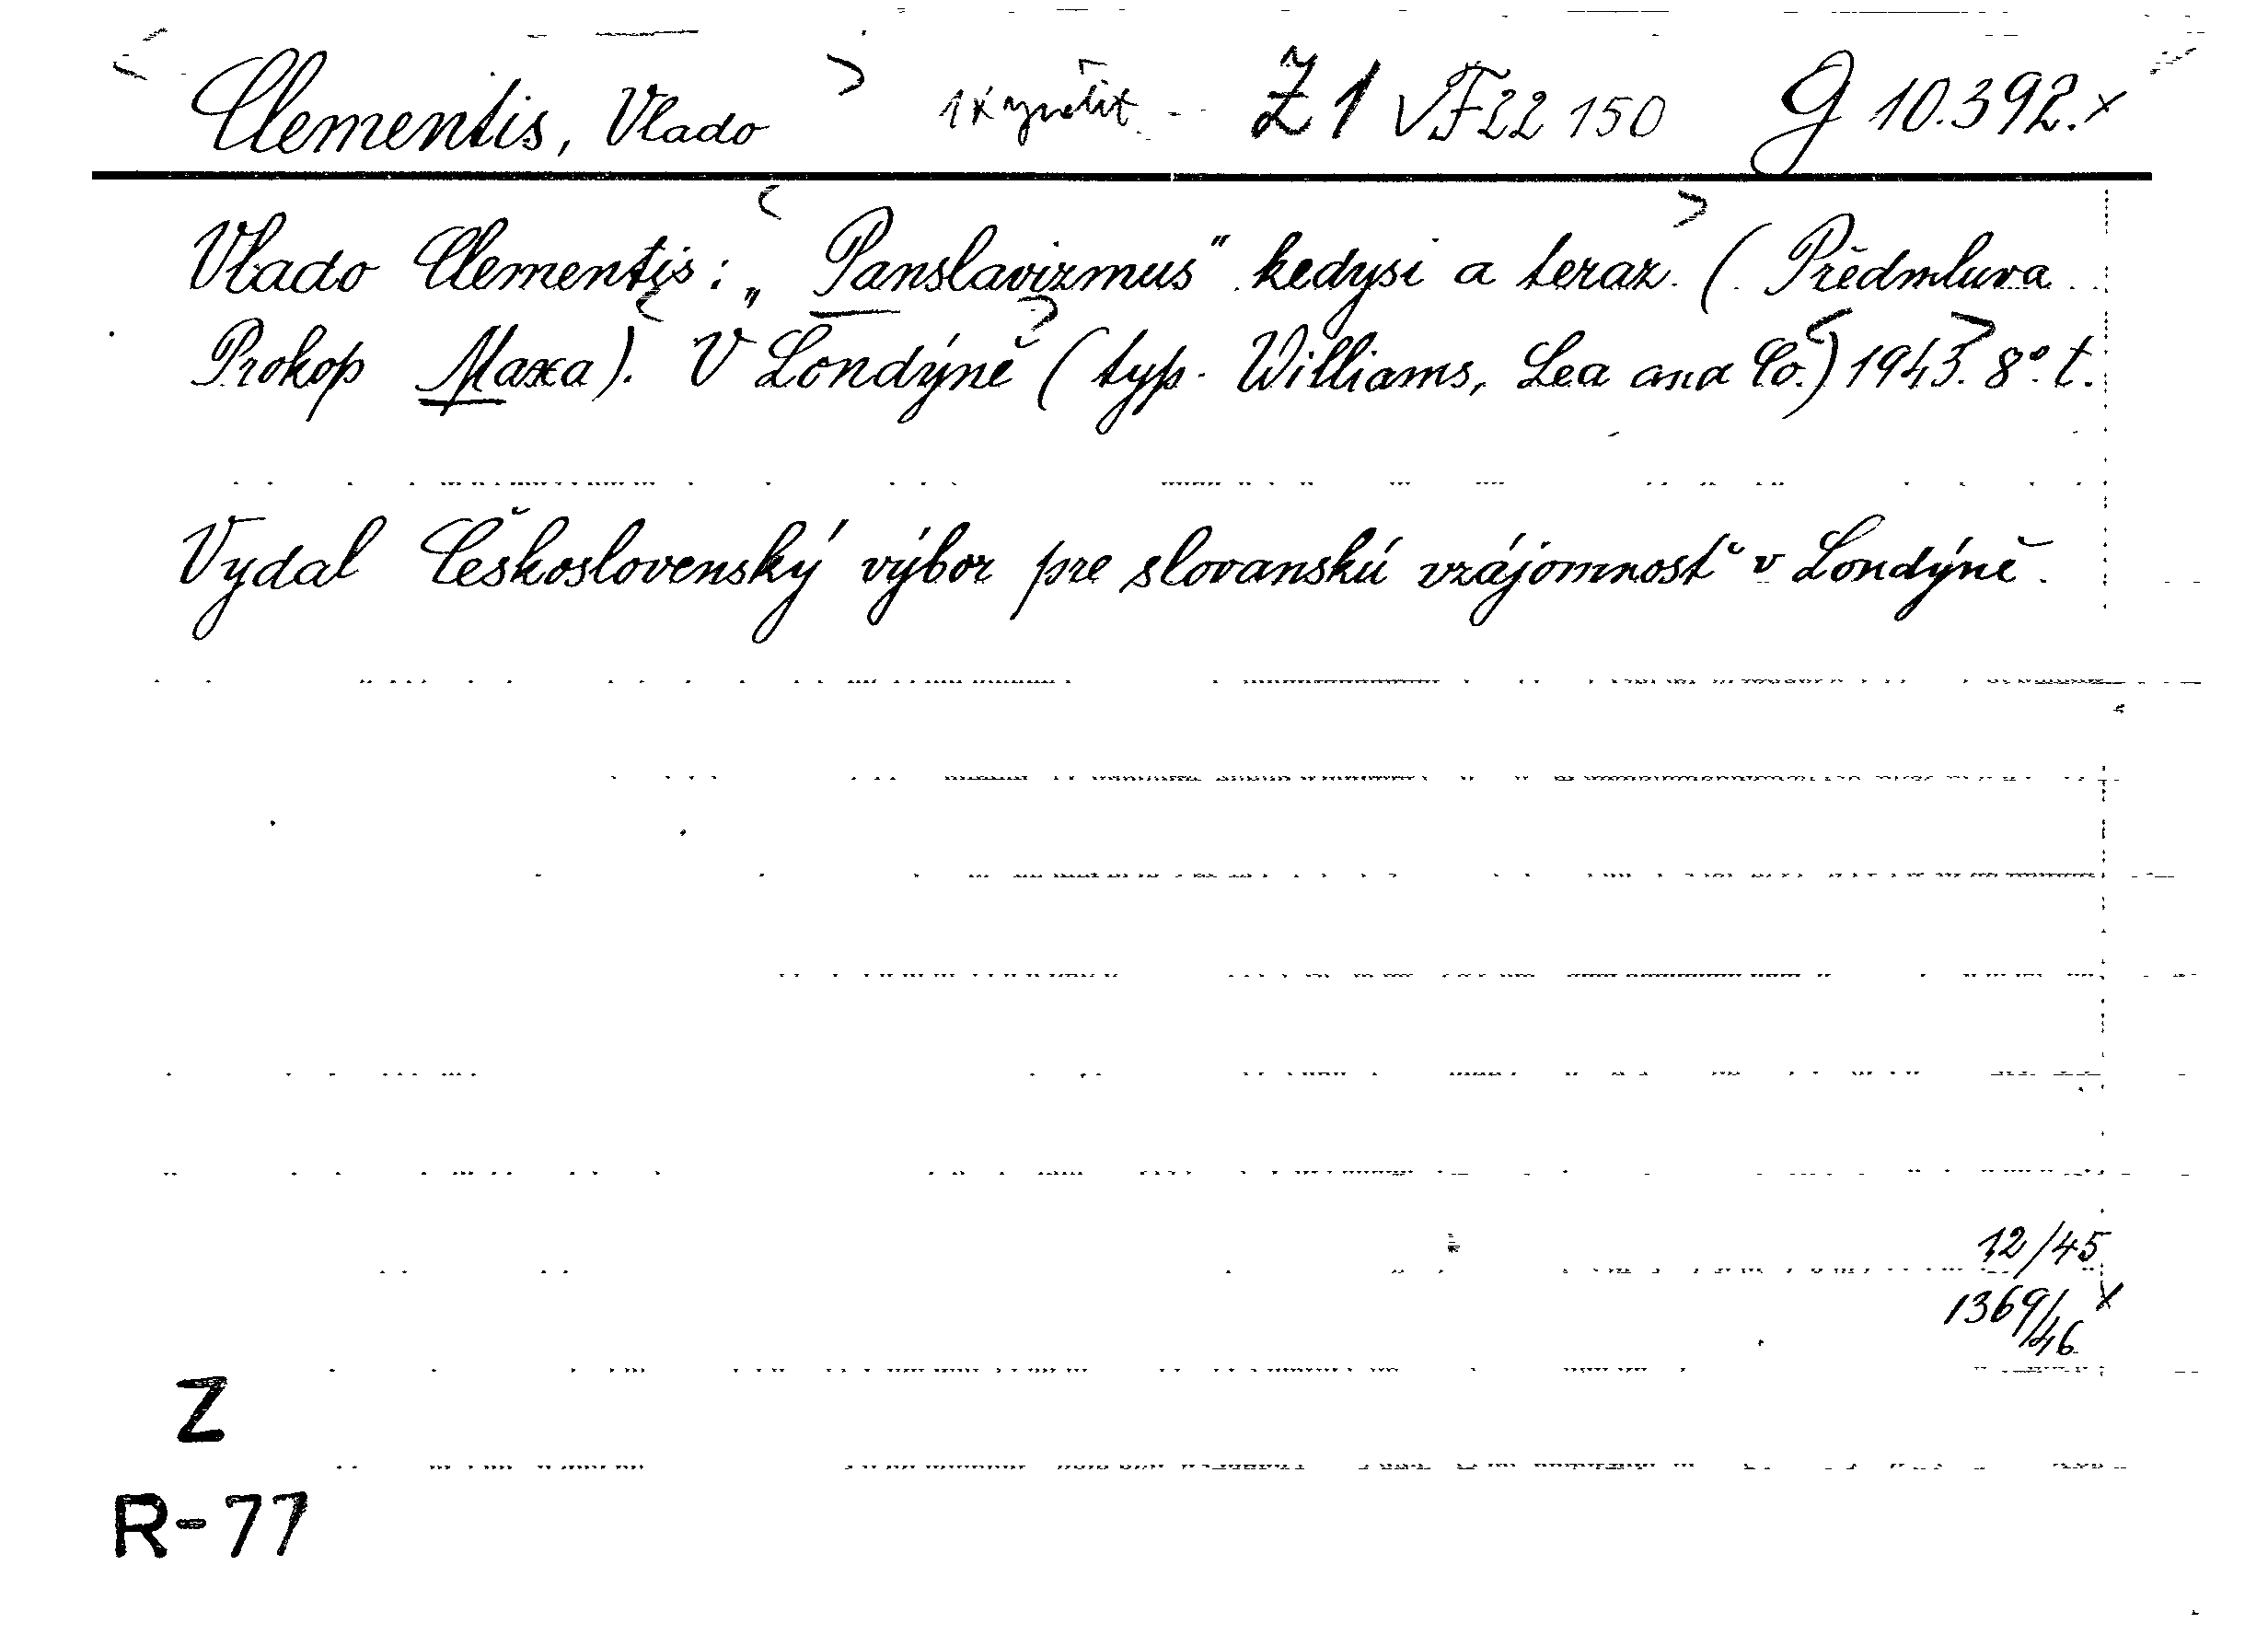 Clementis, Vlado Z 1 F 22 150 G 10.392.x
Vlado Clementis: „Panslavizmus" kedysi a teraz. (Předmluva
Prokop Maxa). V Londýně (typ. Williams, Lea and Co.) 1943. 8°. t.
Vydal Československý výbor pre slovanskú vzájomnosť v Londýně.
12/45
1369/46 x
Z
R-77